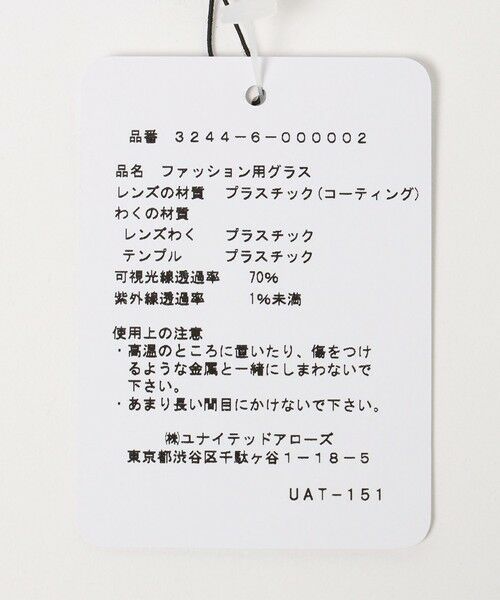 品番 3244-6-000002
品名 ファッション用グラス
レンズの材質 プラスチック(コーティング)
わくの材質
レンズわく プラスチック
テンプル プラスチック
可視光線透過率 70%
紫外線透過率 1%未満
使用上の注意
・高温のところに置いたり、傷をつけ
るような金属と一緒にしまわないで
下さい。
・あまり長い間目にかけないで下さい。
㈱ユナイテッドアローズ
東京都渋谷区千駄ヶ谷1-18-5
UAT-151